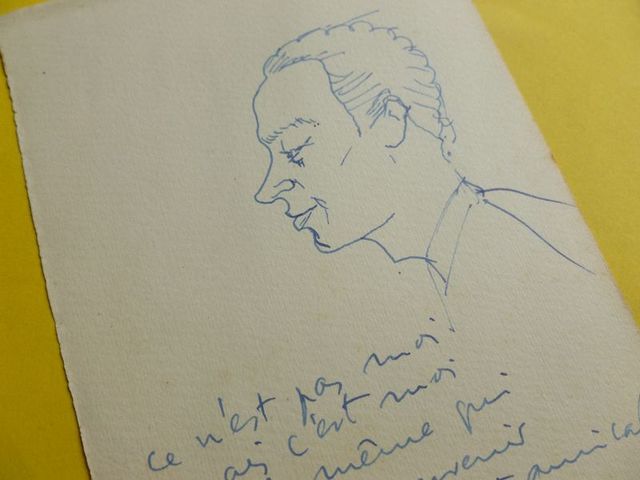 ce n'est pas moi
ais c'est moi
même qui
venir
amical